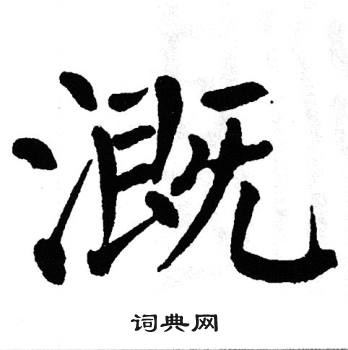 溉
词典网